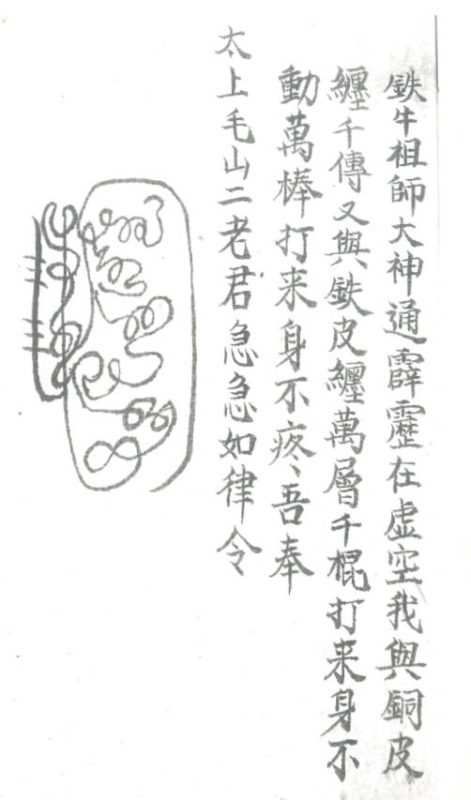 鉄牛祖師大神通霹靂在虚空我與銅皮
纒千傳又與鉄皮纒萬層千棍打来身不
動萬棒打来身不疼、吾奉
太上毛山二老君急急如律令